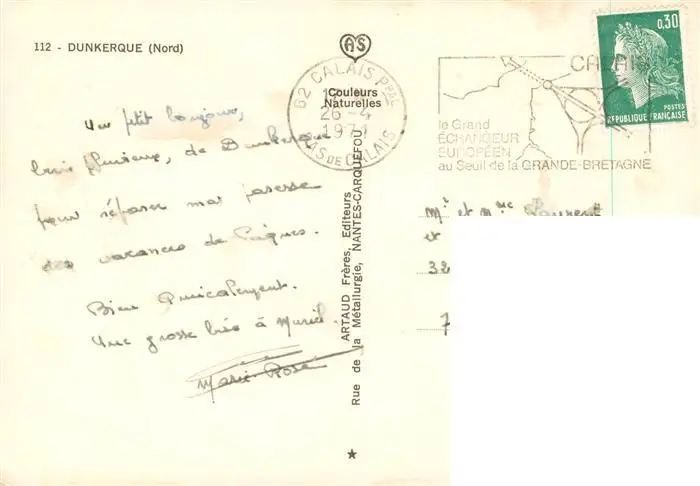 112 - DUNKERQUE (Nord)
AS
Couleurs
Naturelles
62 CALAIS PPAL
26 - 4
PAS DE CALAIS
CALAIS
le Grand
ÉCHANGEUR
EUROPÉEN
au Seuil de la GRANDE-BRETAGNE
0,30
POSTES
REPUBLIQUE FRANÇAISE
Un petit bonjour,
bien pluvieux, de Dunkerque
pour réparer ma paresse
des vacances de Pâques.
Bien Amicalement.
Une grosse bise à Muriel.
Marie-Rose
ARTAUD Frères, Editeurs
Rue de la Métallurgie, NANTES-CARQUEFOU
Mr et Mme Laurent
et
32
7